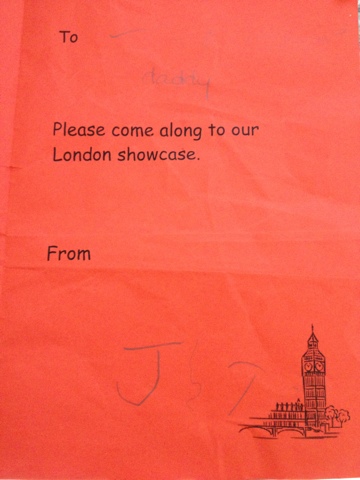 To
daddy
Please come along to our
London showcase.
From
J